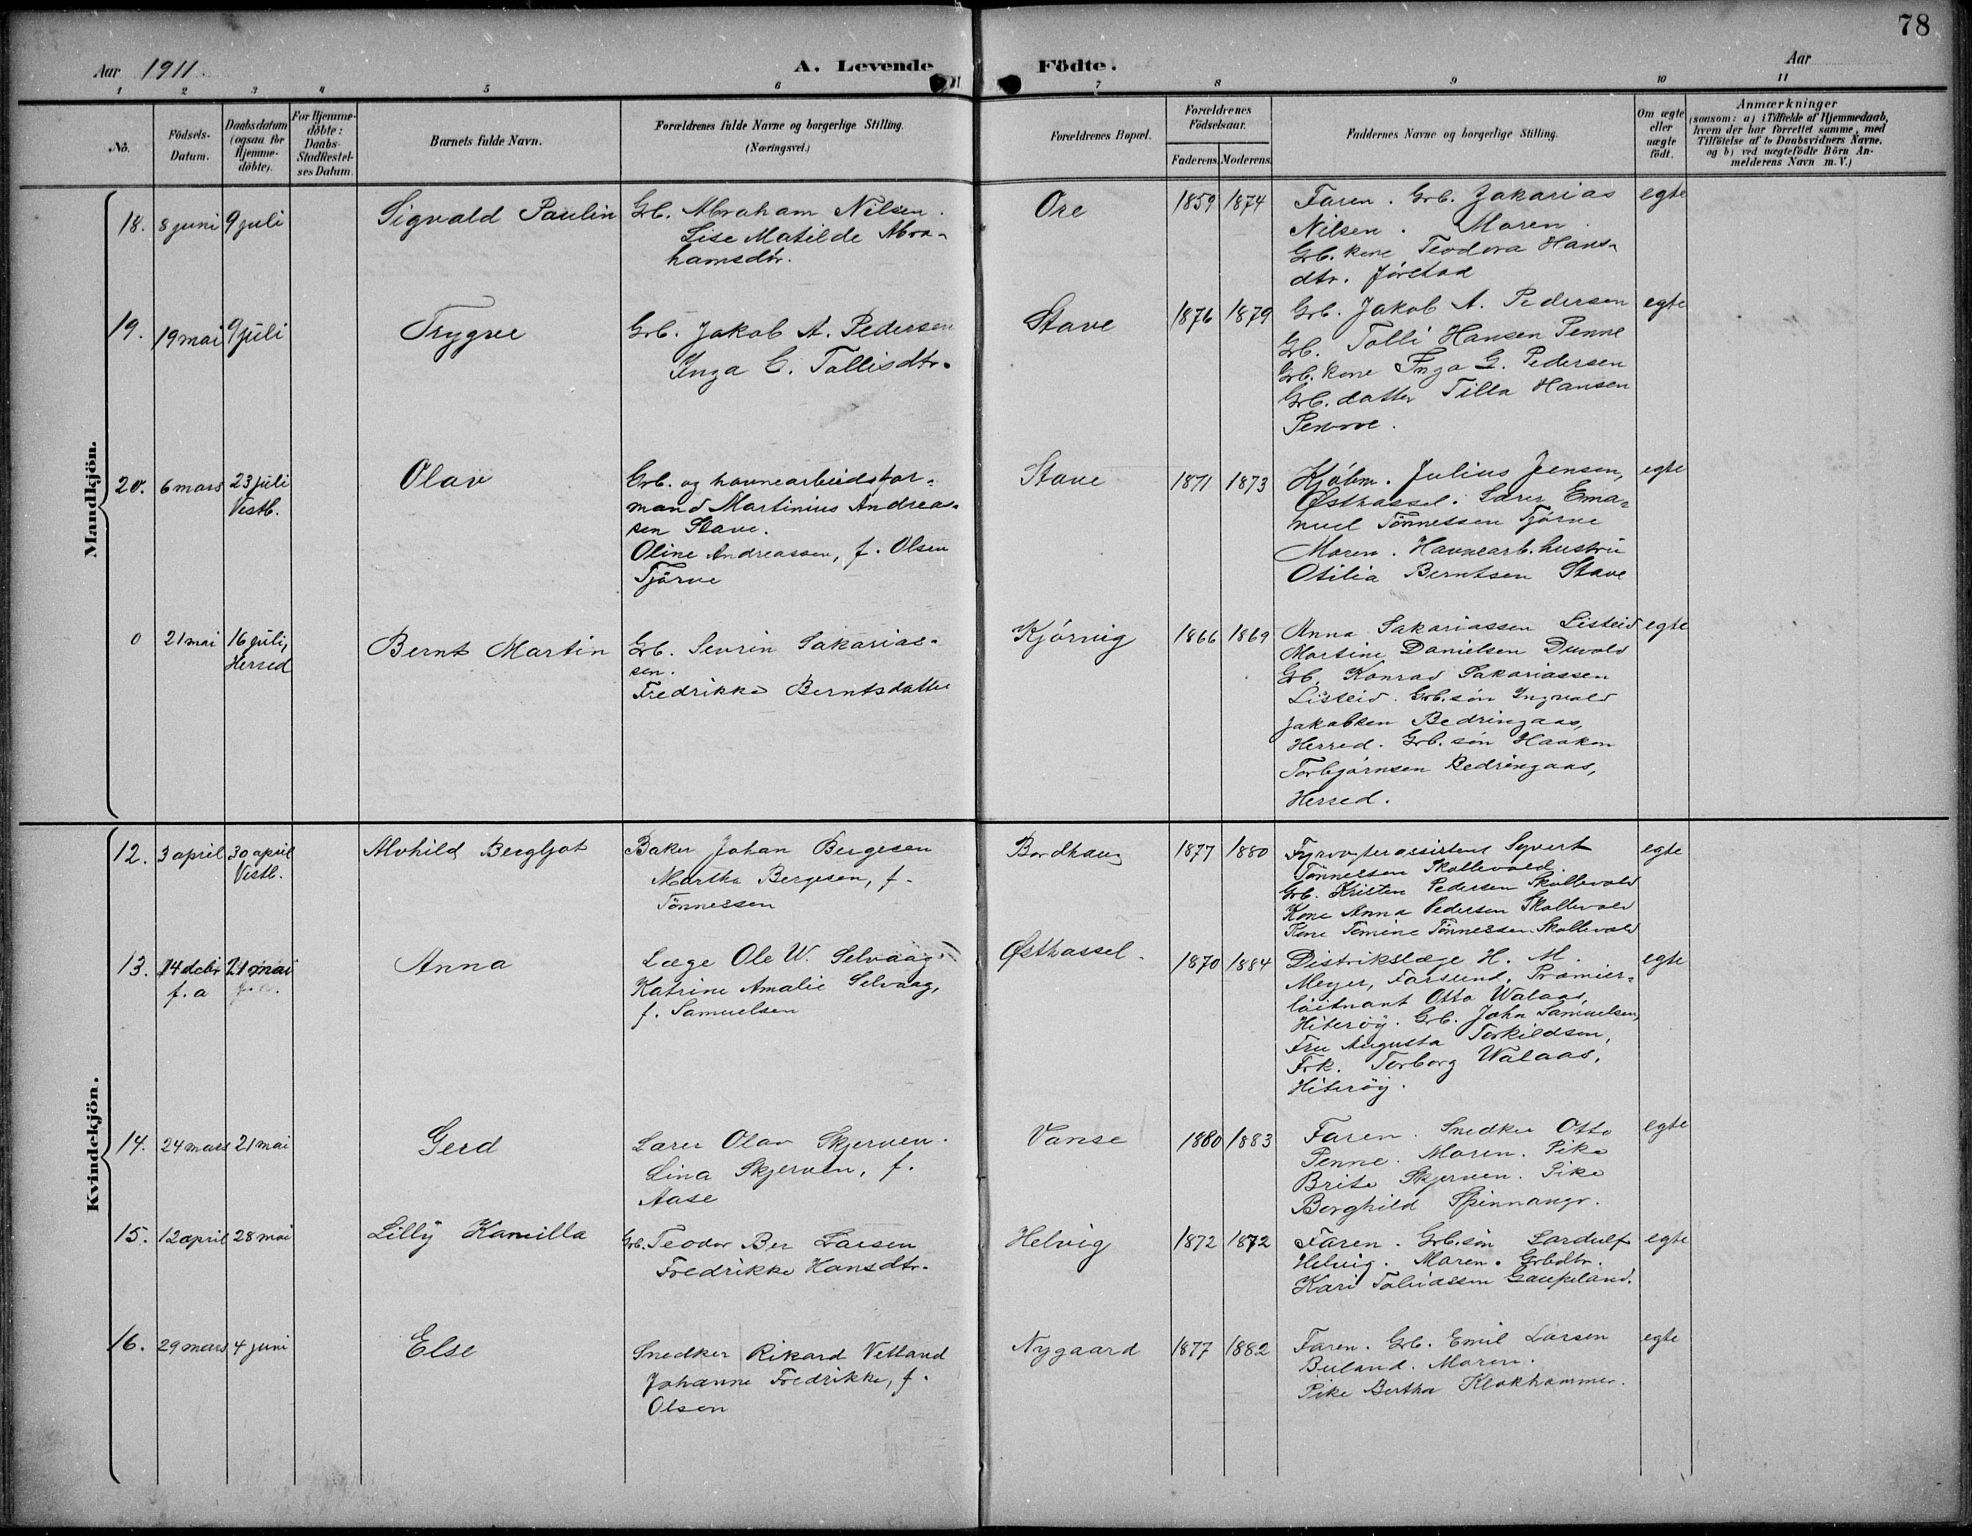 78
Aar 1911.
A. Levende Födte.
Aar
1 2 3 4 5 6 7 8 9 10 11
No. Födsels-Datum. Daabsdatum (ogsaa for Hjemme-døbte). For Hjemme-døbte: Daabs-Stadfæstel-ses Datum. Barnets fulde Navn. Forældrenes fulde Navne og borgerlige Stilling. (Næringsvei.) Forældrenes Bopæl. Forældrenes Födselsaar. Faderens. Moderens. Faddernes Navne og borgerlige Stilling. Om ægte eller uægte født.
Anmærkninger
(saasom: a) i Tilfælde af Hjemmedaab,
hvem der har forrettet samme, med
Tilföielse af to Daabsvidners Navne.
og b) ved uægtefödte Börn An-
melderens Navn m. V.)
Mandkjön.
18. 8 juni 9 juli Sigvald Paulin Grb. Abraham Nilsen. Ore 1859 1874 Faren. Grb. Zakarias egte
Lise Matilde Abra- Nilsen. Moren.
hamsdtr. Grb. kone Teodora Hans-
dtr. Jørstad
19. 19 mai 9 juli Trygve Grb. Jakob A. Pedersen Stave 1876 1879 Grb. Jakob A. Pedersen egte
Inga C. Tallisdtr. Grb. Tolli Hansen Penne
Grb. kone Inga G. Pedersen
Grb. datter Tilla Hansen
Penne.
20. 6 mars 23 juli Olav Grb. og havnearbeidsfor- Stave 1871 1873 Kjøbm. Julius Jensen, egte
Vestb. mand Martinius Andreas- Østhassel. Lærer Ema-
sen Stave. nuel Tønnessen Tjørve
Oline Andreassen, f. Olsen Moren. Havnearb. hustru
Tjørve Otilia Berntsen Stave
0 21 mai 16 juli, Bernt Martin Grb. Sevrin Sakarias- Kjørvig 1866 1869 Anna Sakariassen Listeid egte
Herred sen. Martine Danielsen
Fredrikke Berntsdatter Grb. Konrad Sakariassen
Listeid. Grb. søn Ingvald
Jakobsen Bedringaas,
Herred. Grb. søn Haakon
Torbjørnsen Bedringaas,
Herred.
Kvindekjön.
12. 3 april 30 april Alvhild Bergljot Baker Johan Bergesen Bordhaug 1877 1880 Fyrvogterassistent Syvert egte
Vestb. Martha Bergesen, f. Tønnessen Skollevold.
Tønnessen Grb. Kristen Pedersen Skollevold
Kone Anna Pedersen Skollevold
Kone Tomine Tønnessen Skollevold
13. 14 decbr 21 mai Anna Læge Ole W. Selvaag Østhassel. 1870 1884 Distrikslæge H. M. egte
f. a Katrine Amalie Selvaag, Meyer, Farsund, Præmier-
f. Samuelsen løitnant Otto Walaas,
Hiterøy. Grb. John Samuelsen,
Fru Augusta Torkildsen,
Frk. Torborg Walaas,
Hiterøy.
14. 24 mars 21 mai Gerd Lærer Olav Skjerven. Vanse 1880 1883 Faren. Snedker Otto egte
Lina Skjerven, f. Penne. Moren. Pike
Aase Brite Skjerven. Pike
Borghild Spinnangr.
15. 12 april 28 mai Lilly Kamilla Grb. Teodor Ber Larsen Helvig 1872 1872 Faren. Grb. søn Lardulf egte
Fredrikke Hansdtr. Helvig. Moren. Grbdtr.
Kari Tobiassen Gaupeland.
16. 29 mars 4 juni Else Snedker Rikard Vetland Nygaard 1877 1882 Faren. Grb. Emil Larsen egte
Johanne Fredrikke, f. Buland. Moren.
Olsen Pike Bertha Klokhammer.